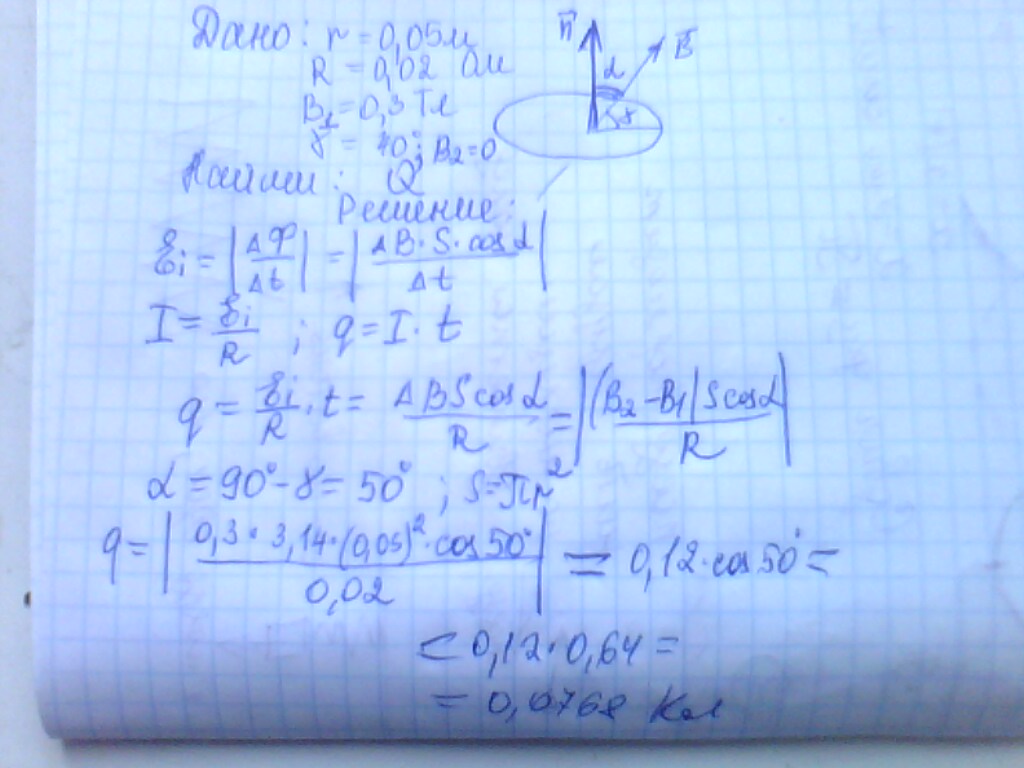 Дано: r = 0,05м
R = 0,02 Ом
B₁ = 0,3 Тл
γ = 40°; B₂ = 0
n⃗ B⃗
α
γ
Найти: Q
Решение:
Ɛi = |ΔФ/Δt| = |ΔB·S·cosα/Δt|
I = Ɛi/R ; q = I·t
q = Ɛi/R · t = ΔBScosα/R = |(B₂-B₁|Scosα/R|
α = 90°-γ = 50° ; S=πr²
q = |0,3·3,14·(0,05)²·cos50°/0,02| = 0,12·cos50° =
= 0,12·0,64 =
= 0,0768 Кл